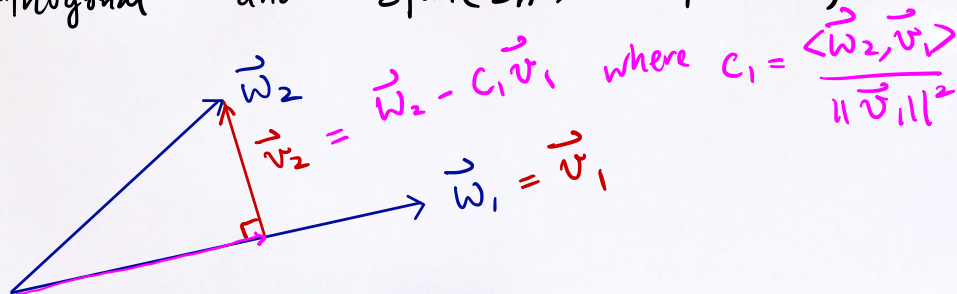 $\vec{w}_2$
$\vec{v}_2 = \vec{w}_2 - c_1 \vec{v}_1$ where $c_1 = \frac{\langle \vec{w}_2, \vec{v}_1 \rangle}{\|\vec{v}_1\|^2}$
$\vec{w}_1 = \vec{v}_1$